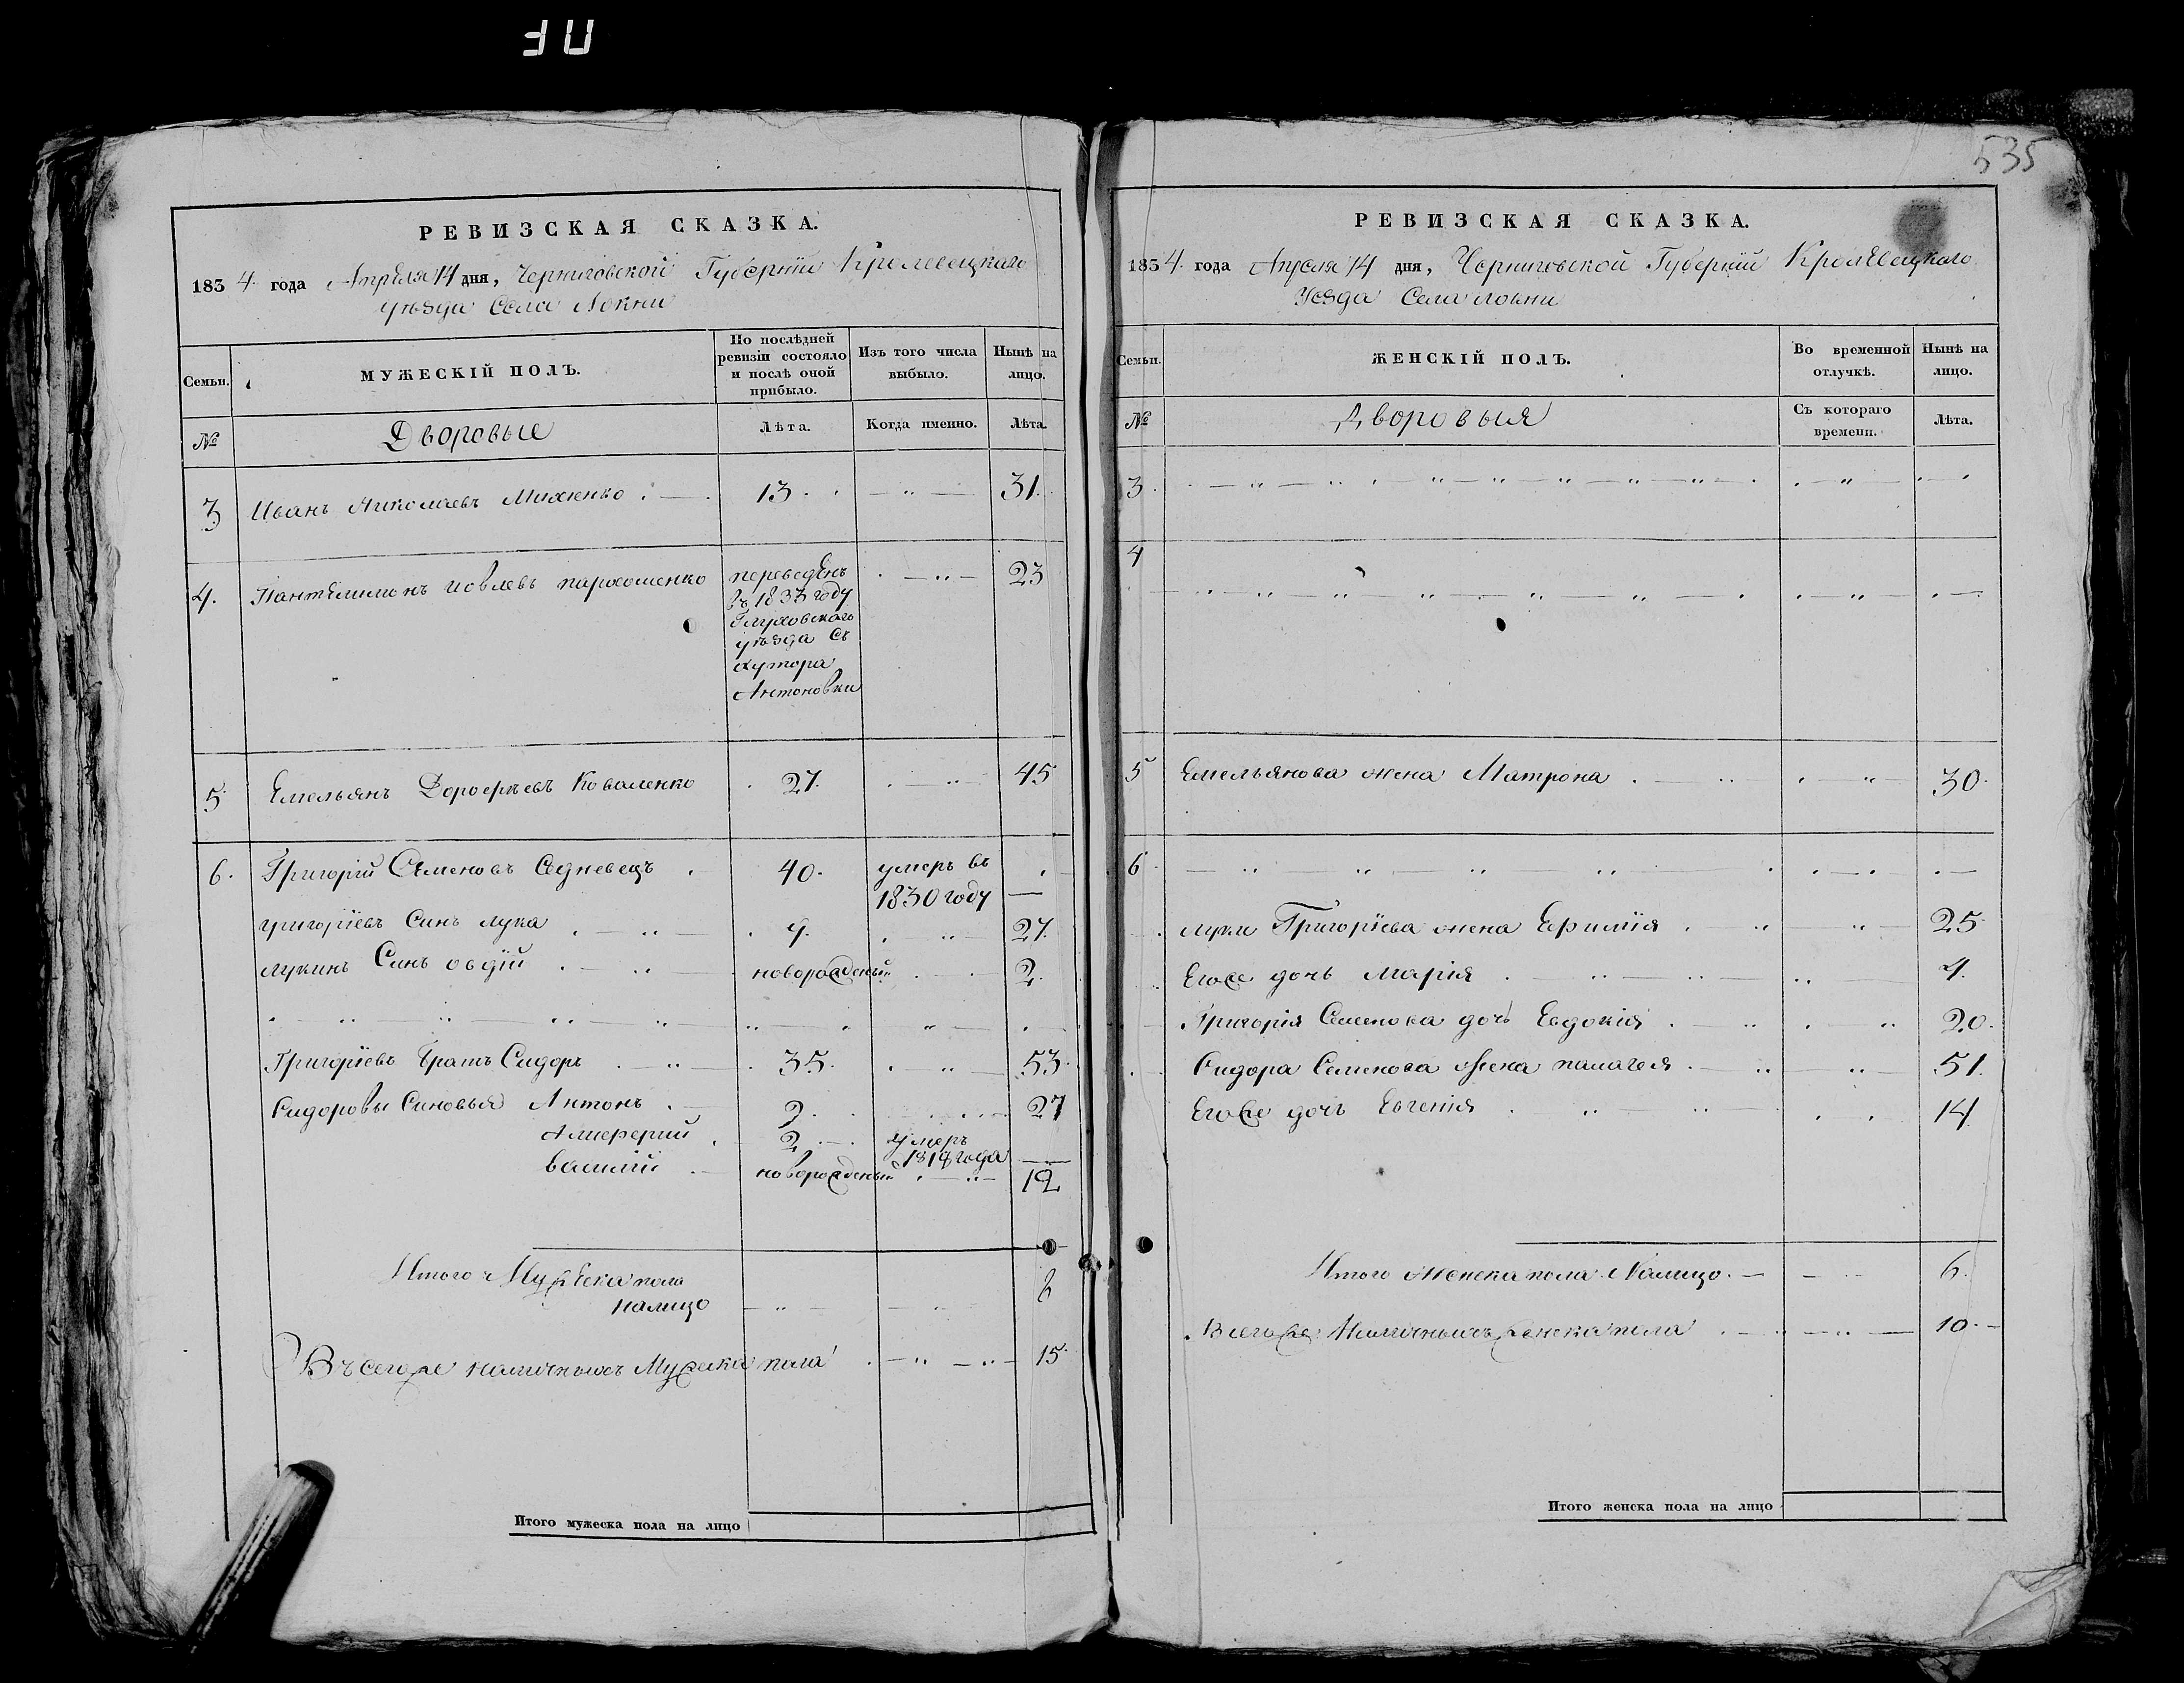 535
РЕВИЗСКАЯ СКАЗКА.
1834 года Апреля 14 дня, Черниговской Губернiи Кролевецкаго
уѣзда Села Локни
Семьи. МУЖЕСКІЙ ПОЛЪ. По послѣдней ревизіи состояло и послѣ оной прибыло. Изъ того числа выбыло. Нынѣ на лицо.
№ Дворовые Лѣта. Когда именно. Лѣта.
3 Иванъ Николаевъ Михенко 13. 31.
4. Пантелимонъ Иовлевъ пархоменко переведенъ 23
въ 1833 году
Глуховского
уѣзда съ
хутора
Антоновки
5 Емельянъ Дорофеевъ Коваленко 27. 45
6. Григорій Семеновъ Седневецъ 40. умеръ въ
1830 году
григоріевъ Синъ лука 9. 27.
лукинъ Синъ овдій новорожденый 2.
Григоріевъ братъ Сидоръ 35. 53.
Сидоровы Синовья Антонъ 9. 27
2. умеръ
1818 года
василій новорожденый 12
Итого Мужеска пола
налицо 6
Всегоже наличныхъ Мужеска пола 15.
Итого мужеска пола на лицо
РЕВИЗСКАЯ СКАЗКА.
1834. года Апреля 14 дня, Черниговской Губерніи Кролевецкаго
Уезда Села локни
Семьи. ЖЕНСКІЙ ПОЛЪ. Во временной отлучкѣ. Нынѣ на лицо.
№ Дворовыя Съ котораго времени. Лѣта.
3.
4
5 Емельянова жена Матрона 30.
6
луки Григоріева жена Ефимія 25
Егоже дочь Марія 4.
Григорія Семенова дочь Евдокія 20.
Сидора Семенова жена палагея 51.
Егоже дочь Евгенія 14
Итого женска пола Налицо. 6.
Всегоже Наличныхъ женска пола 10.
Итого женска пола на лицо